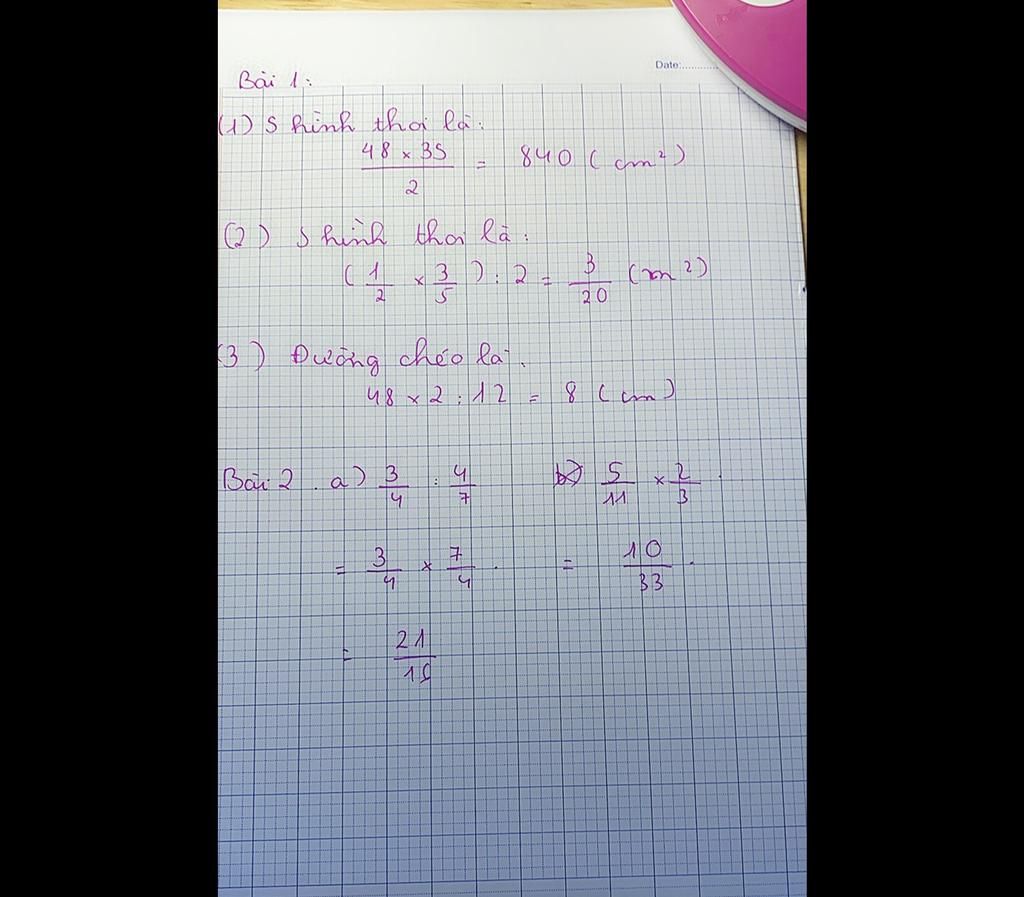 Date:............
Bài 1:
(1) S hình thoi là:
48 × 35 / 2 = 840 (cm²)
(2) S hình thoi là:
(1/2 × 3/5) : 2 = 3/20 (m²)
(3) Đường chéo là:
48 × 2 : 12 = 8 (cm)
Bài 2. a) 3/4 : 4/7 b) 5/11 × 2/3
= 3/4 × 7/4 = 10/33
= 21/